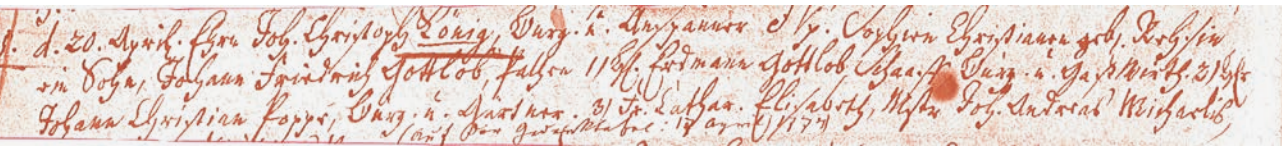 d. 20. April. Ehrn Joh. Christoph König, Burg. u. Anspanner Sophien Christianen geb.
ein Sohn, Johann Friedrich Gottlob, Pathen 1) H. Erdmann Gottlob Schaaff Burg. u. Gastwirth. 2)
Johann Christian Poppe, Burg. u. Gärtner. 3) Fr. Cathar. Elisabeth, Mstr Joh. Andreas Michaelis,
(auf der April